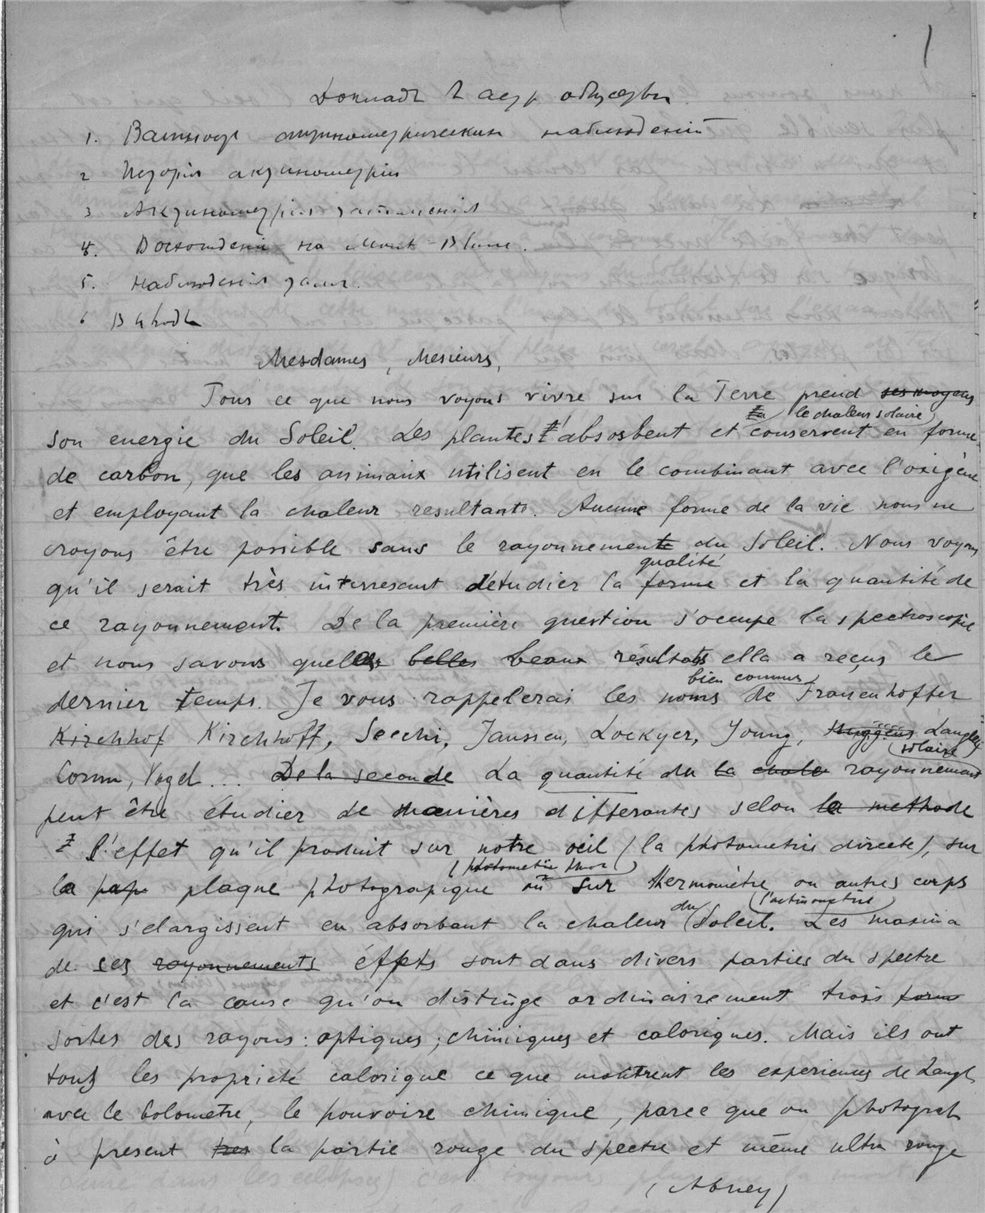 1
Докладъ 2 астр обществѣ
1. актинометрическихъ наблюденій
2 Исторія актинометріи
3 Актинометрія
4. Восхожденія на Монт-Blanc.
5. Наблюденія
6
Mesdames, Mesieurs,
Tous ce que nous voyons vivre sur la Terre prend ses moyens
la le chaleur solaire
son energie du Soleil. Les plantes l'absosbent et conservent en forme
de carbon, que les animaux utilisent en le combinant avec l'oxigène
et employant la chaleur resultante. Aucune forme de la vie nous ne
croyons être possible sans le rayonnement du Soleil. Nous voyons
qualité
qu'il serait très interresant d'etudier la forme et la quantité de
ce rayonnement. De la première question s'occupe la spectroscopie
et nous savons quels belles beaux résultats ella a reçus le
bien connus
dernier temps. Je vous rappelerai les noms de Frauenhoffer
Kirchhof Kirchhoff, Secchi, Janssen, Lockyer, Young, Huggens Langley
solaire
Cornu, Vogel... De la seconde La quantité du la chale rayonnement
peut être étudier de manières differantes selon la methode
l'effet qu'il produit sur notre oeil (la photometrie directe), sur
(photometrie
la pap plaque photograpique ou sur thermomètre ou autres corps
du (l'actinometrie)
qui s'elargissent en absorbant la chaleur Soleil. Les maxima
de ses rayonnements éffets sont dans divers parties du spectre
et c'est la cause qu'on distinge ordinairement trois form
sortes des rayons: optiques, chimiques et caloriques. Mais ils ont
tous les proprieté calorique ce que montrent les experiences de Langl
avec le bolometre, le pouvoire chimique, parce que on photograph
à present tres la partie rouge du spectre et même ultra rouge
(Abney)